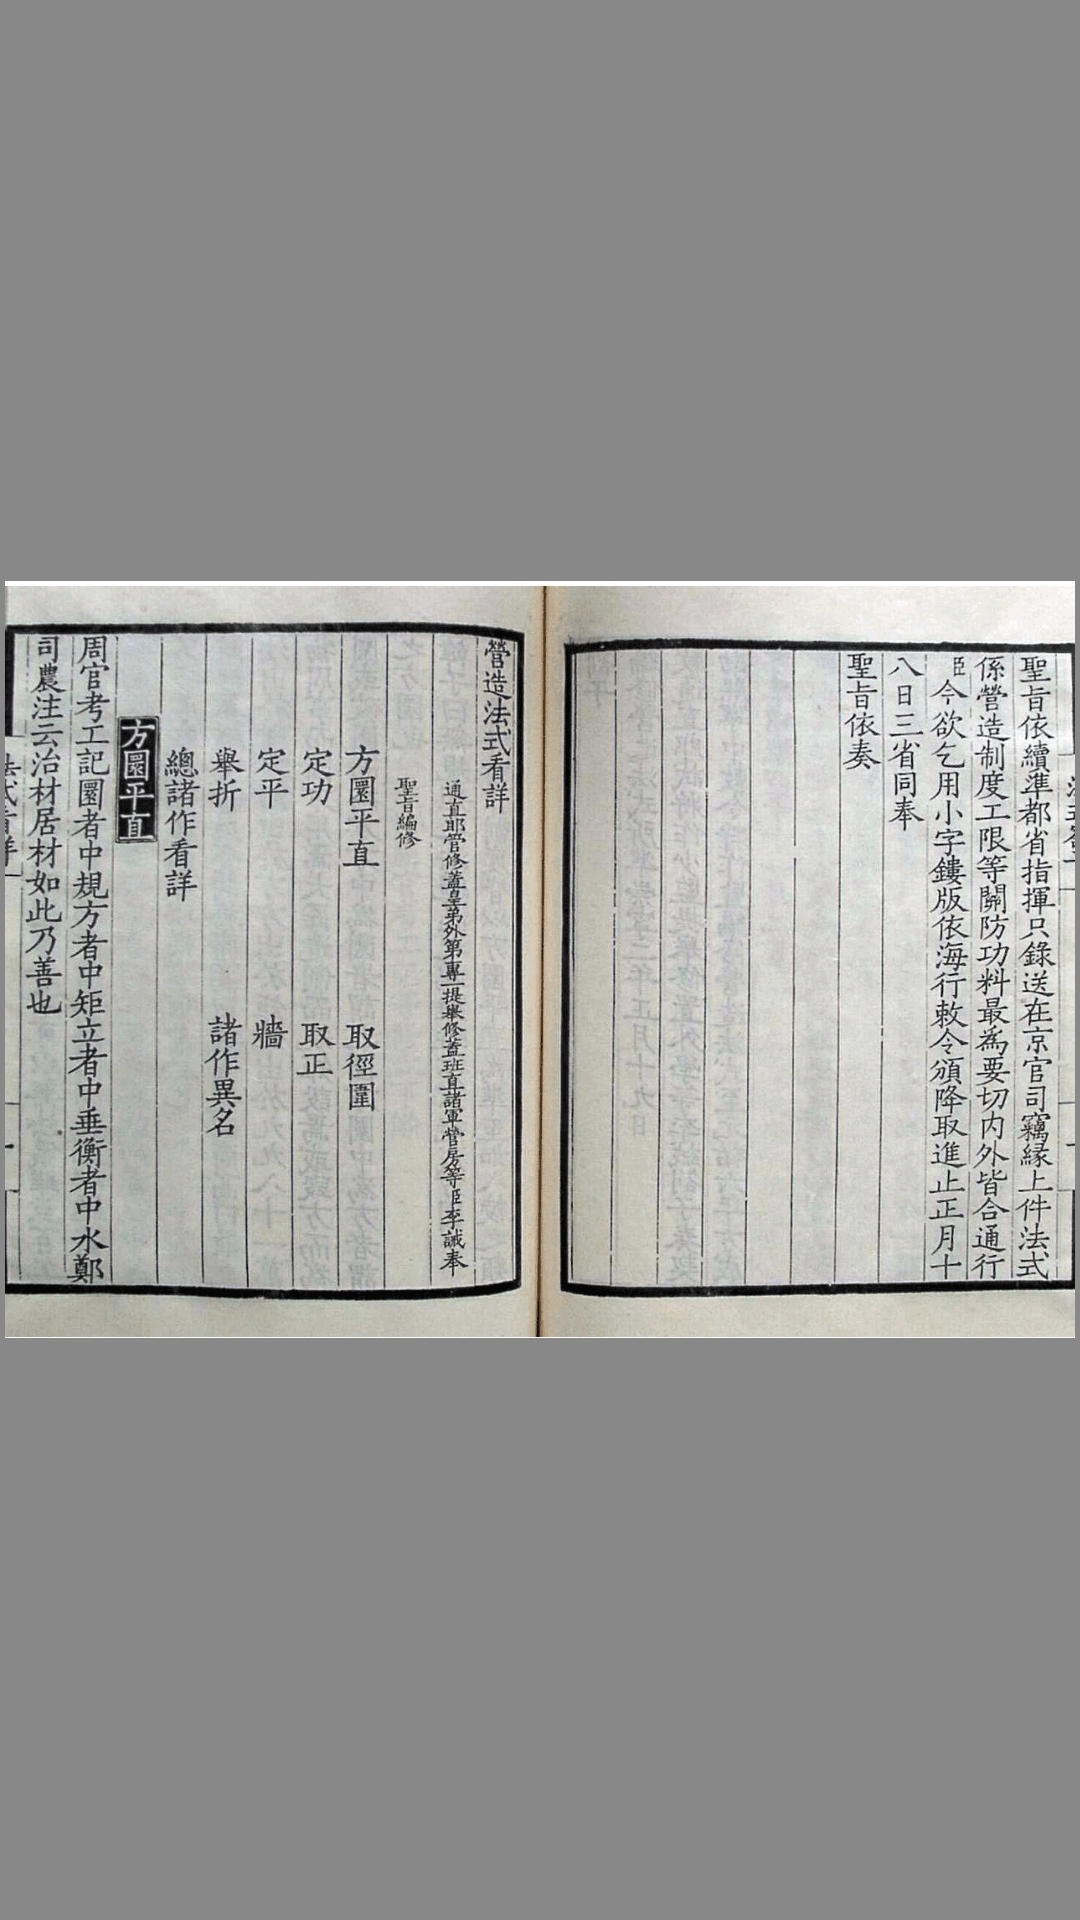 聖旨依續準都省指揮只錄送在京官司竊緣上件法式
係營造制度工限等關防功料最為要切内外皆合通行
臣今欲乞用小字鏤版依海行敕令頒降取進止正月十
八日三省同奉
聖旨依奏
營造法式看詳
通直郎管修蓋皇弟外第專一提舉修蓋班直諸軍營房等臣李誡奉
聖旨編修
方圜平直 取徑圍
定功 取正
定平 牆
舉折 諸作異名
總諸作看詳
方圜平直
周官考工記圜者中規方者中矩立者中垂衡者中水鄭
司農注云治材居材如此乃善也
法式看詳